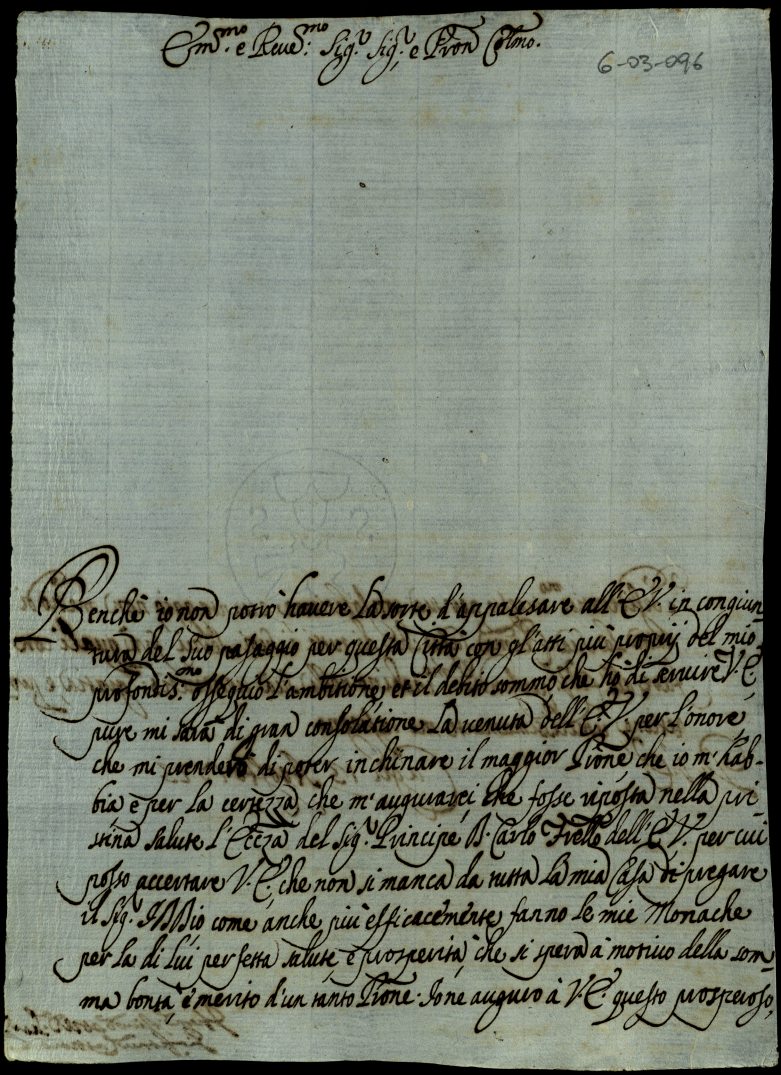 Em.mo e Reve.mo Sig.r Sig.r e Pron Colmo.
6-03-096
Benche io non potrò havere la sorte d'appalesare all'E.V. in congiun-
tura del suo pasaggio per questa Città con gl'atti più proprij del mio
profondis.mo ossequio l'ambitione, et il debito sommo che hò di servire V.E.
pure mi sarà di gran consolatione la venuta dell'E.V. per l'onore
che mi prenderò di poter inchinare il maggior Prone, che io m'hab-
bia e per la certezza che m'augurarei che fosse riposta nella pri-
stina salute l'Ecc.za del Sig.r Principe D. Carlo Frello dell'E.V. per cui
posso accertare V.E. che non si manca da tutta la mia Casa di pregare
il Sig.r IDDio come anche più efficacemente fanno le mie Monache
per la di lui perfetta salute, e prosperità, che si spera à motivo della som-
ma bontà, e merito d'un tanto Prone. Io ne auguro à V.E. questo prosperoso,